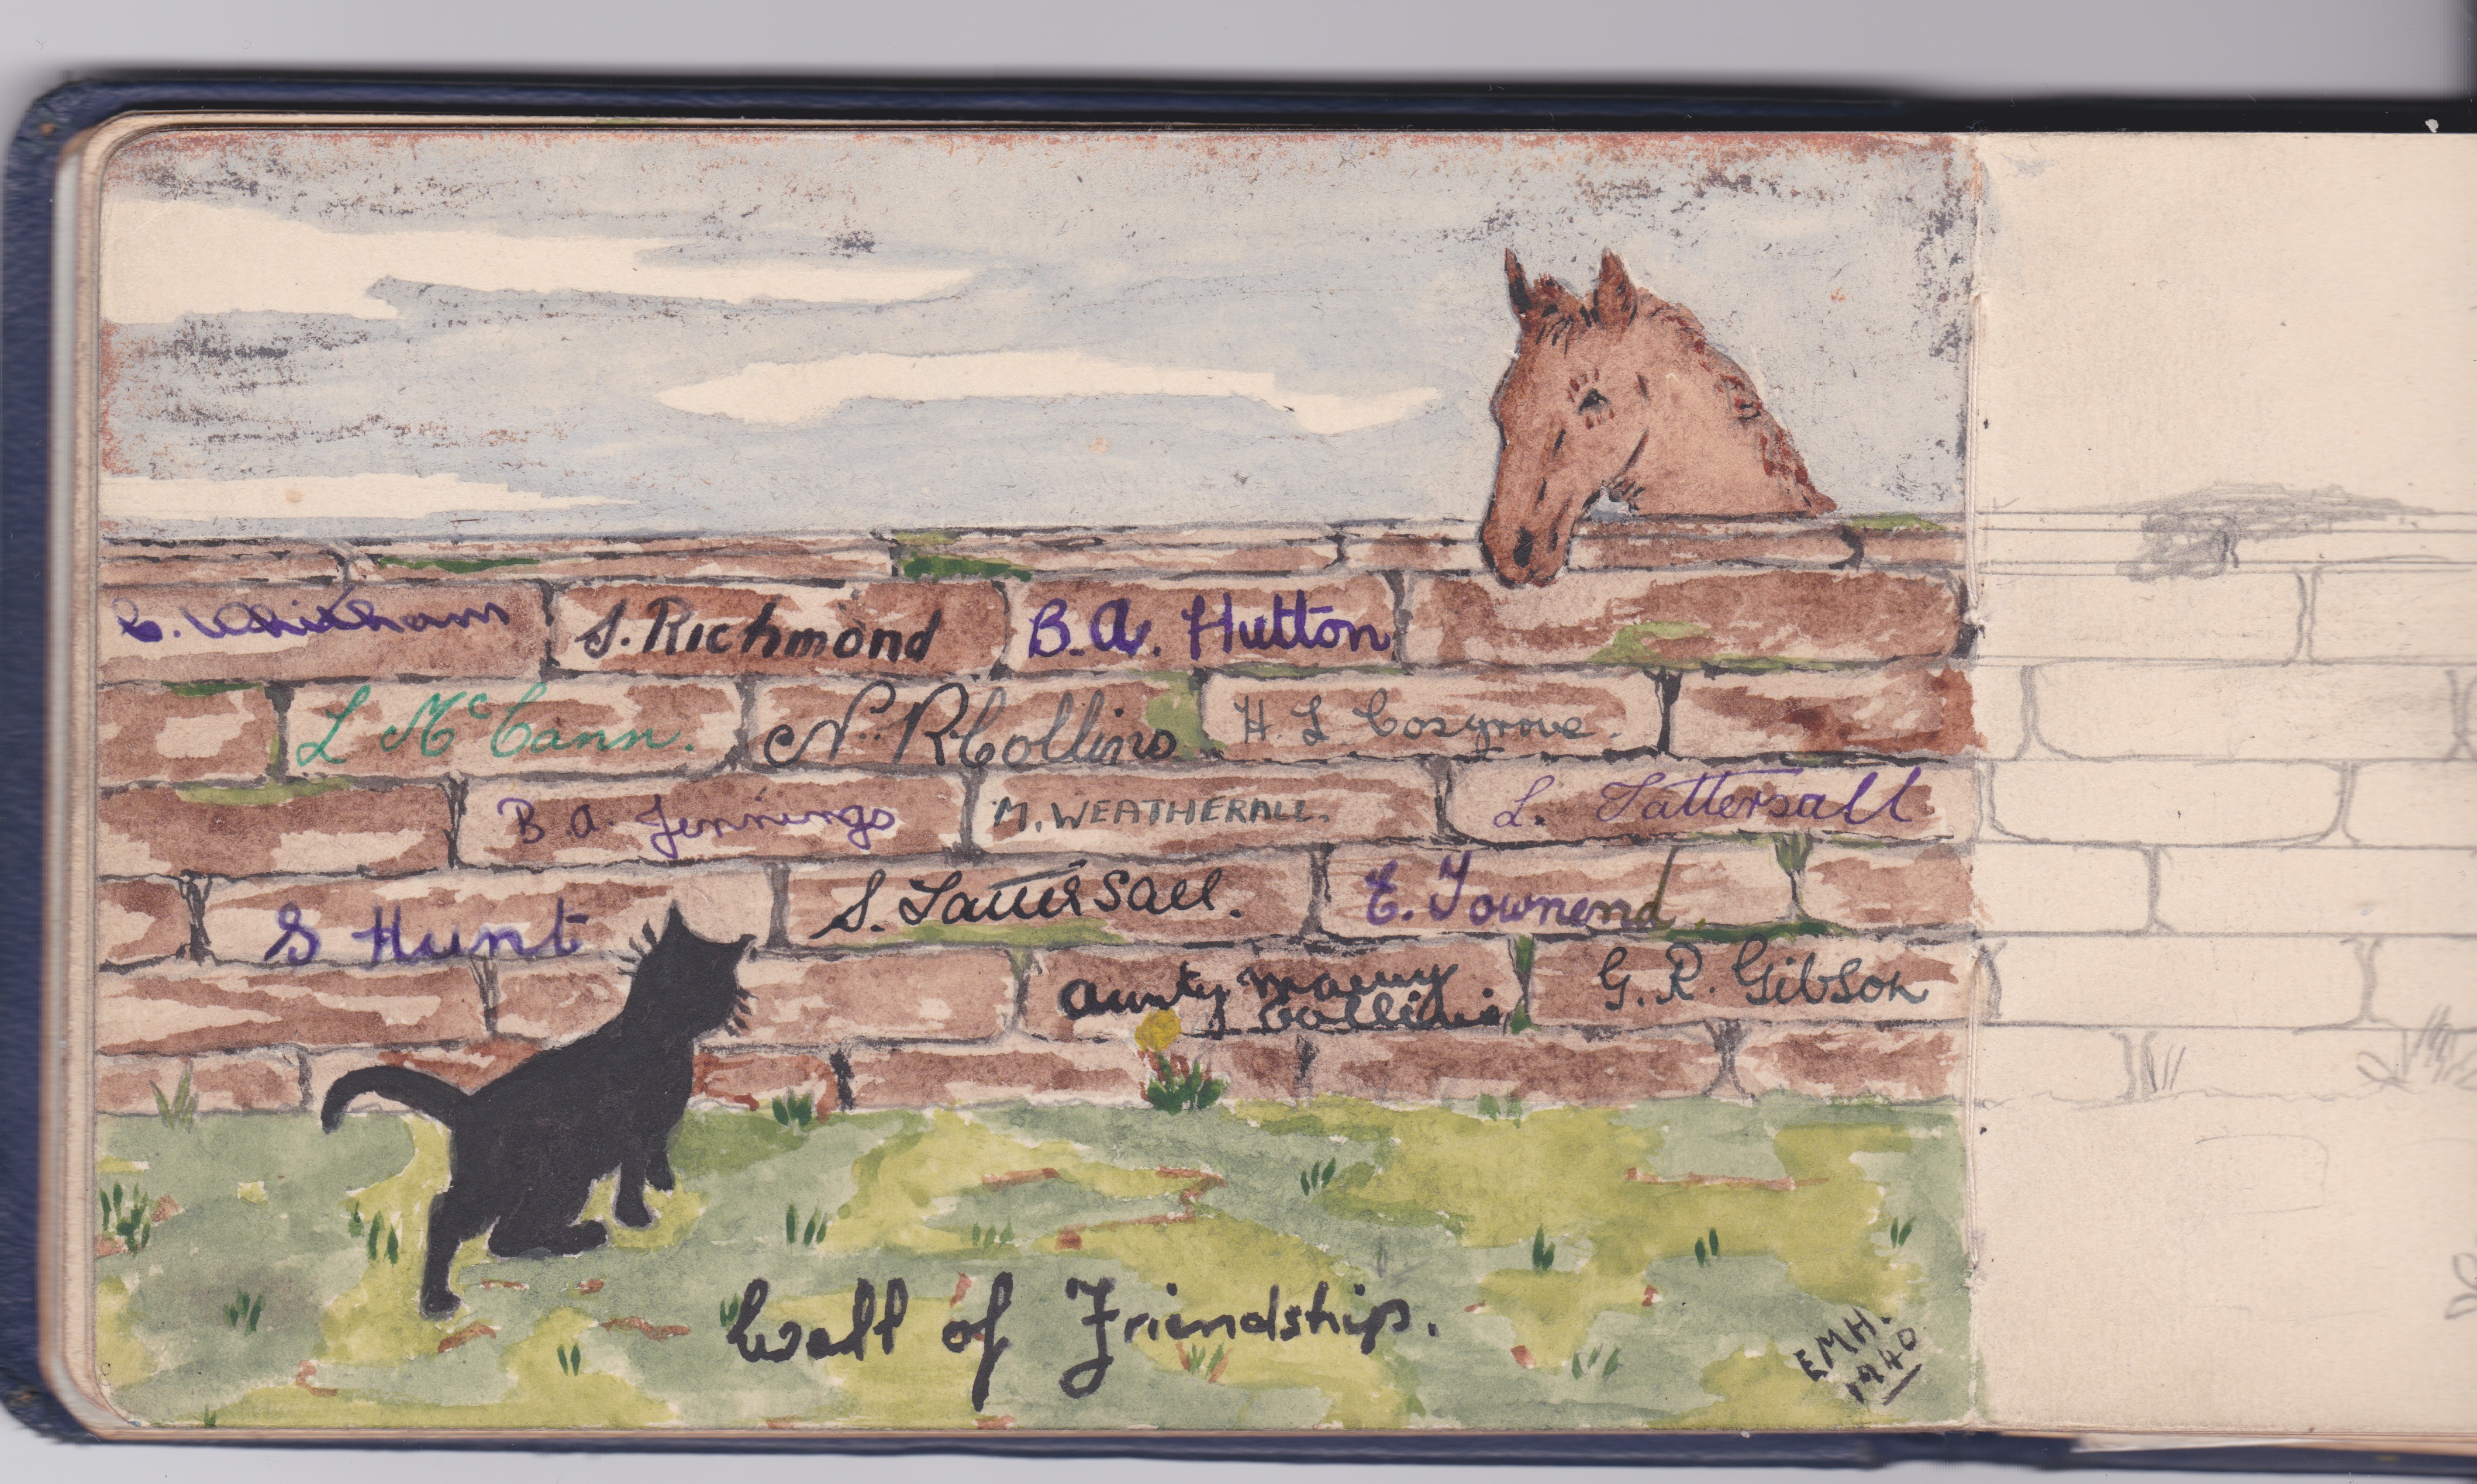 C. Whitham
S. Richmond
B.A. Hutton
L McCann.
N. R Collins
H. L Cosgrove.
B.A. Jennings
M. WEATHERALL.
L. Tattersall
S Hunt
S. Tattersall.
E. Townend.
Aunty
Collins
G. R. Gibson
Wall of Friendship.
EMH.
1940